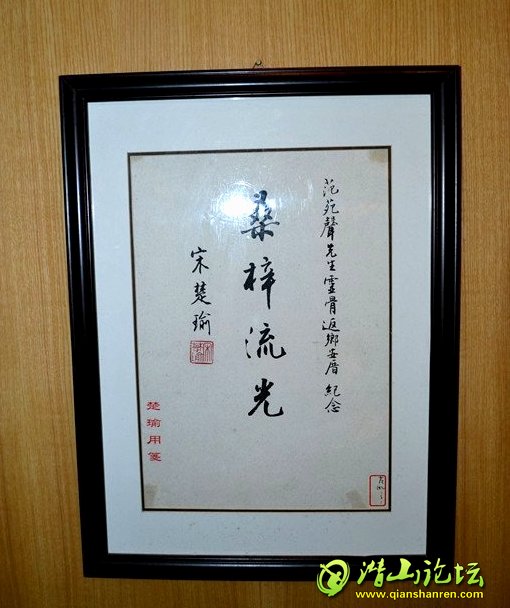 范苑聲先生靈骨返鄉安厝 紀念
桑梓流光
宋楚瑜
楚瑜用箋
潜山论坛
www.qianshanren.com